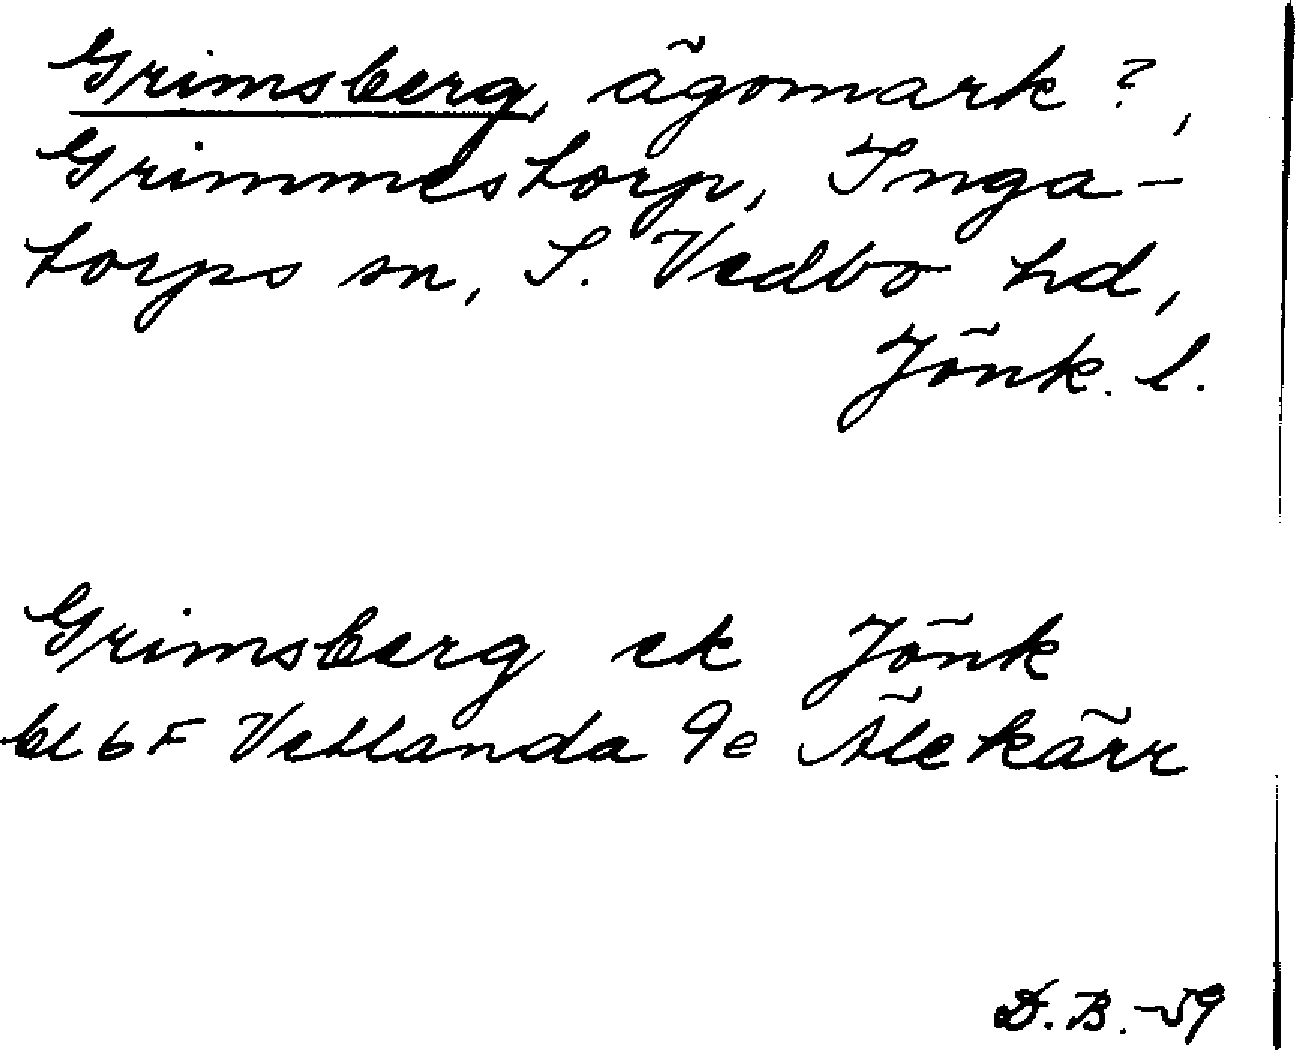 Grimsberg, ägomark?,
Grimmestorp, Inga-
torps sn, S. Vedbo hd,
Jönk. l.
Grimsberg ek Jönk
bl 6F Vetlanda 9e Älekärr
D.B.-59